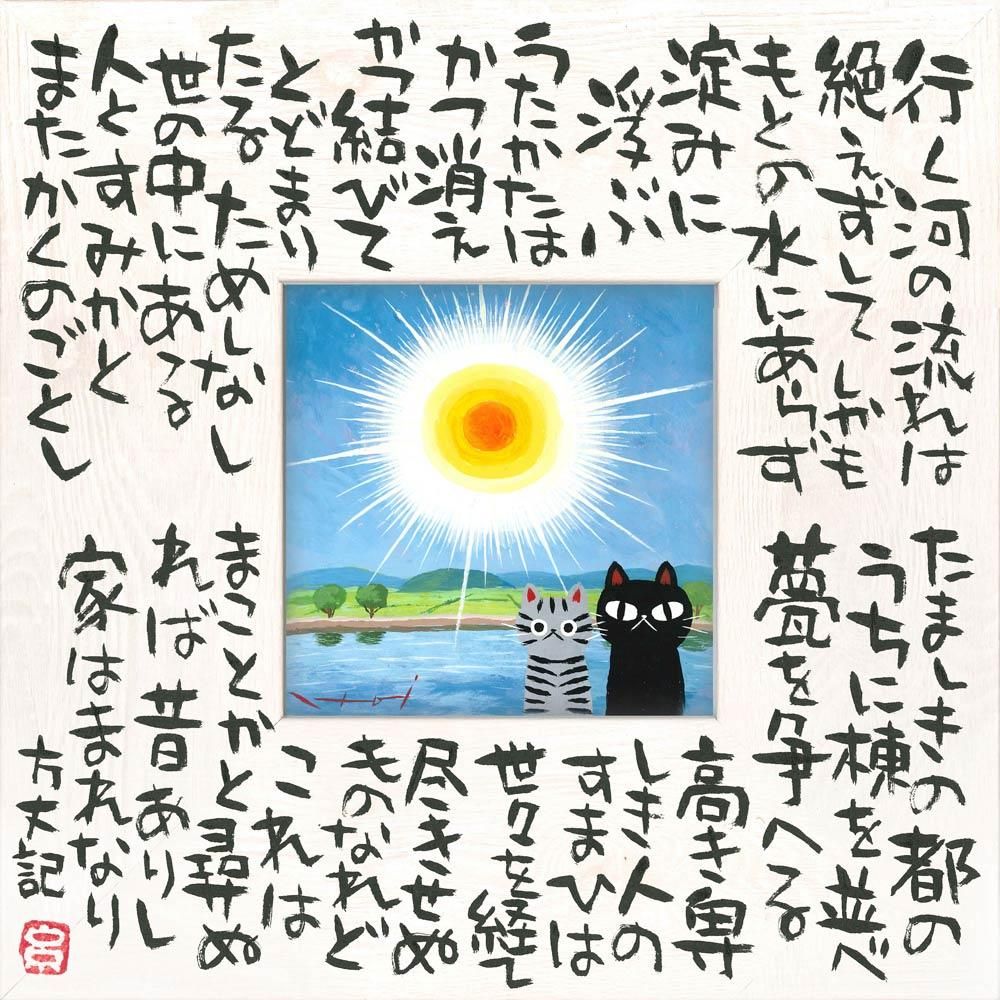 行く河の流れは
絶えずして しかも
もとの水にあらず
淀みに
浮ぶ
うたかたは
かつ消え
かつ結びて
とどまり
たる ためしなし
世の中にある
人とすみかと
またかくのごとし
たましきの都の
うちに棟を並べ
甍を争へる
高き卑
しき人の
すまひは
世々を経て
尽きせぬ
ものなれど
これは
まことかと尋ぬ
れば 昔ありし
家はまれなり
方丈記